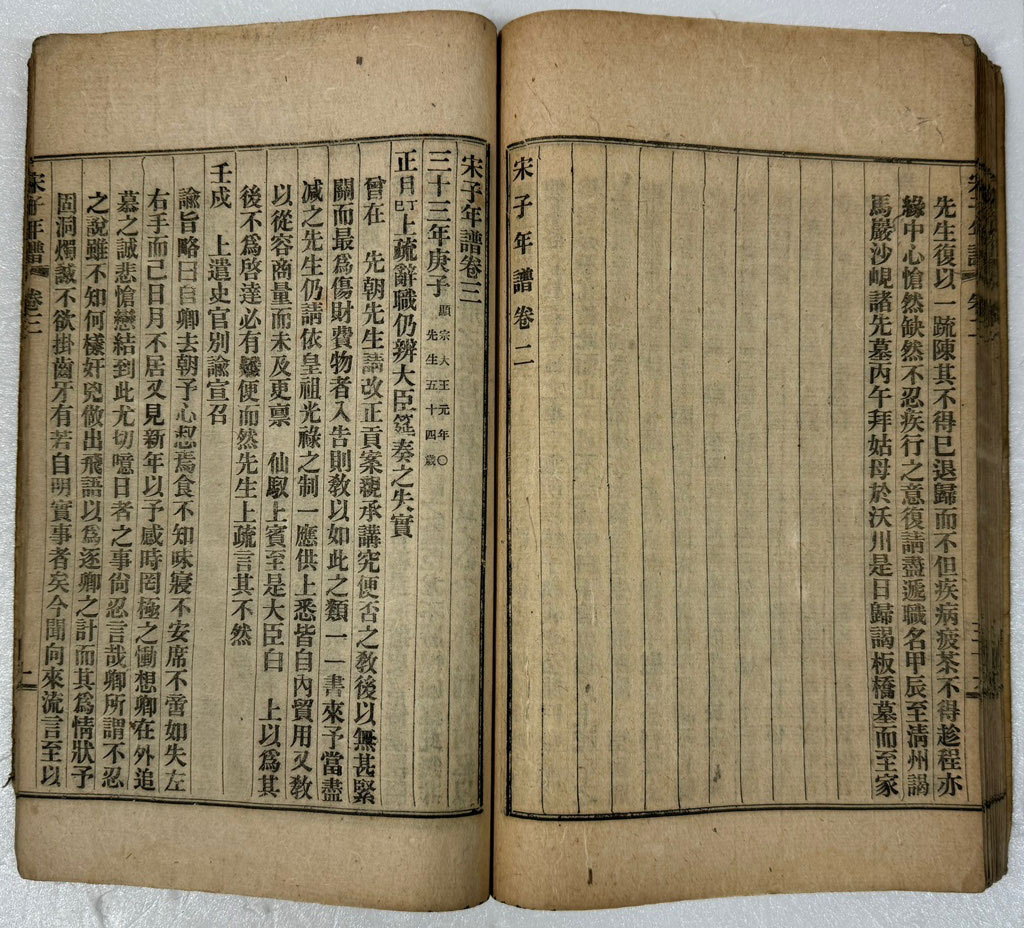 先生復以一疏陳其不得已退歸而不但疾病疲苶不得趁程亦
緣中心愴然缺然不忍疾行之意復請盡遞職名甲辰至淸州謁
馬巖沙峴諸先墓丙午拜姑母於沃川是日歸謁板橋墓而至家
宋子年譜卷二
宋子年譜卷三
三十三年庚子 顯宗大王元年○先生五十四歲
正月丁巳上疏辭職仍辨大臣筵奏之失實
曾在 先朝先生請改正貢案親承講究便否之敎後以無甚緊
關而最爲傷財費物者入告則敎以如此之類一一書來予當盡
減之先生仍請依皇祖光祿之制一應供上悉皆自內貿用又敎
以從容商量而未及更稟 仙馭上賓至是大臣白 上以爲其
後不爲啓達必有難便而然先生上疏言其不然
壬戌 上遣史官別諭宣召
諭旨略曰自卿去朝予心惄焉食不知味寢不安席不啻如失左
右手而已日月不居又見新年以予感時罔極之慟想卿在外追
慕之誠悲愴戀結到此尤切噫日者之事尙忍言哉卿所謂不忍
之說雖不知何樣奸兇做出飛語以爲逐卿之計而其爲情狀予
固洞燭誠不欲掛齒牙有若自明實事者矣今聞向來流言至以
宋子年譜 卷三